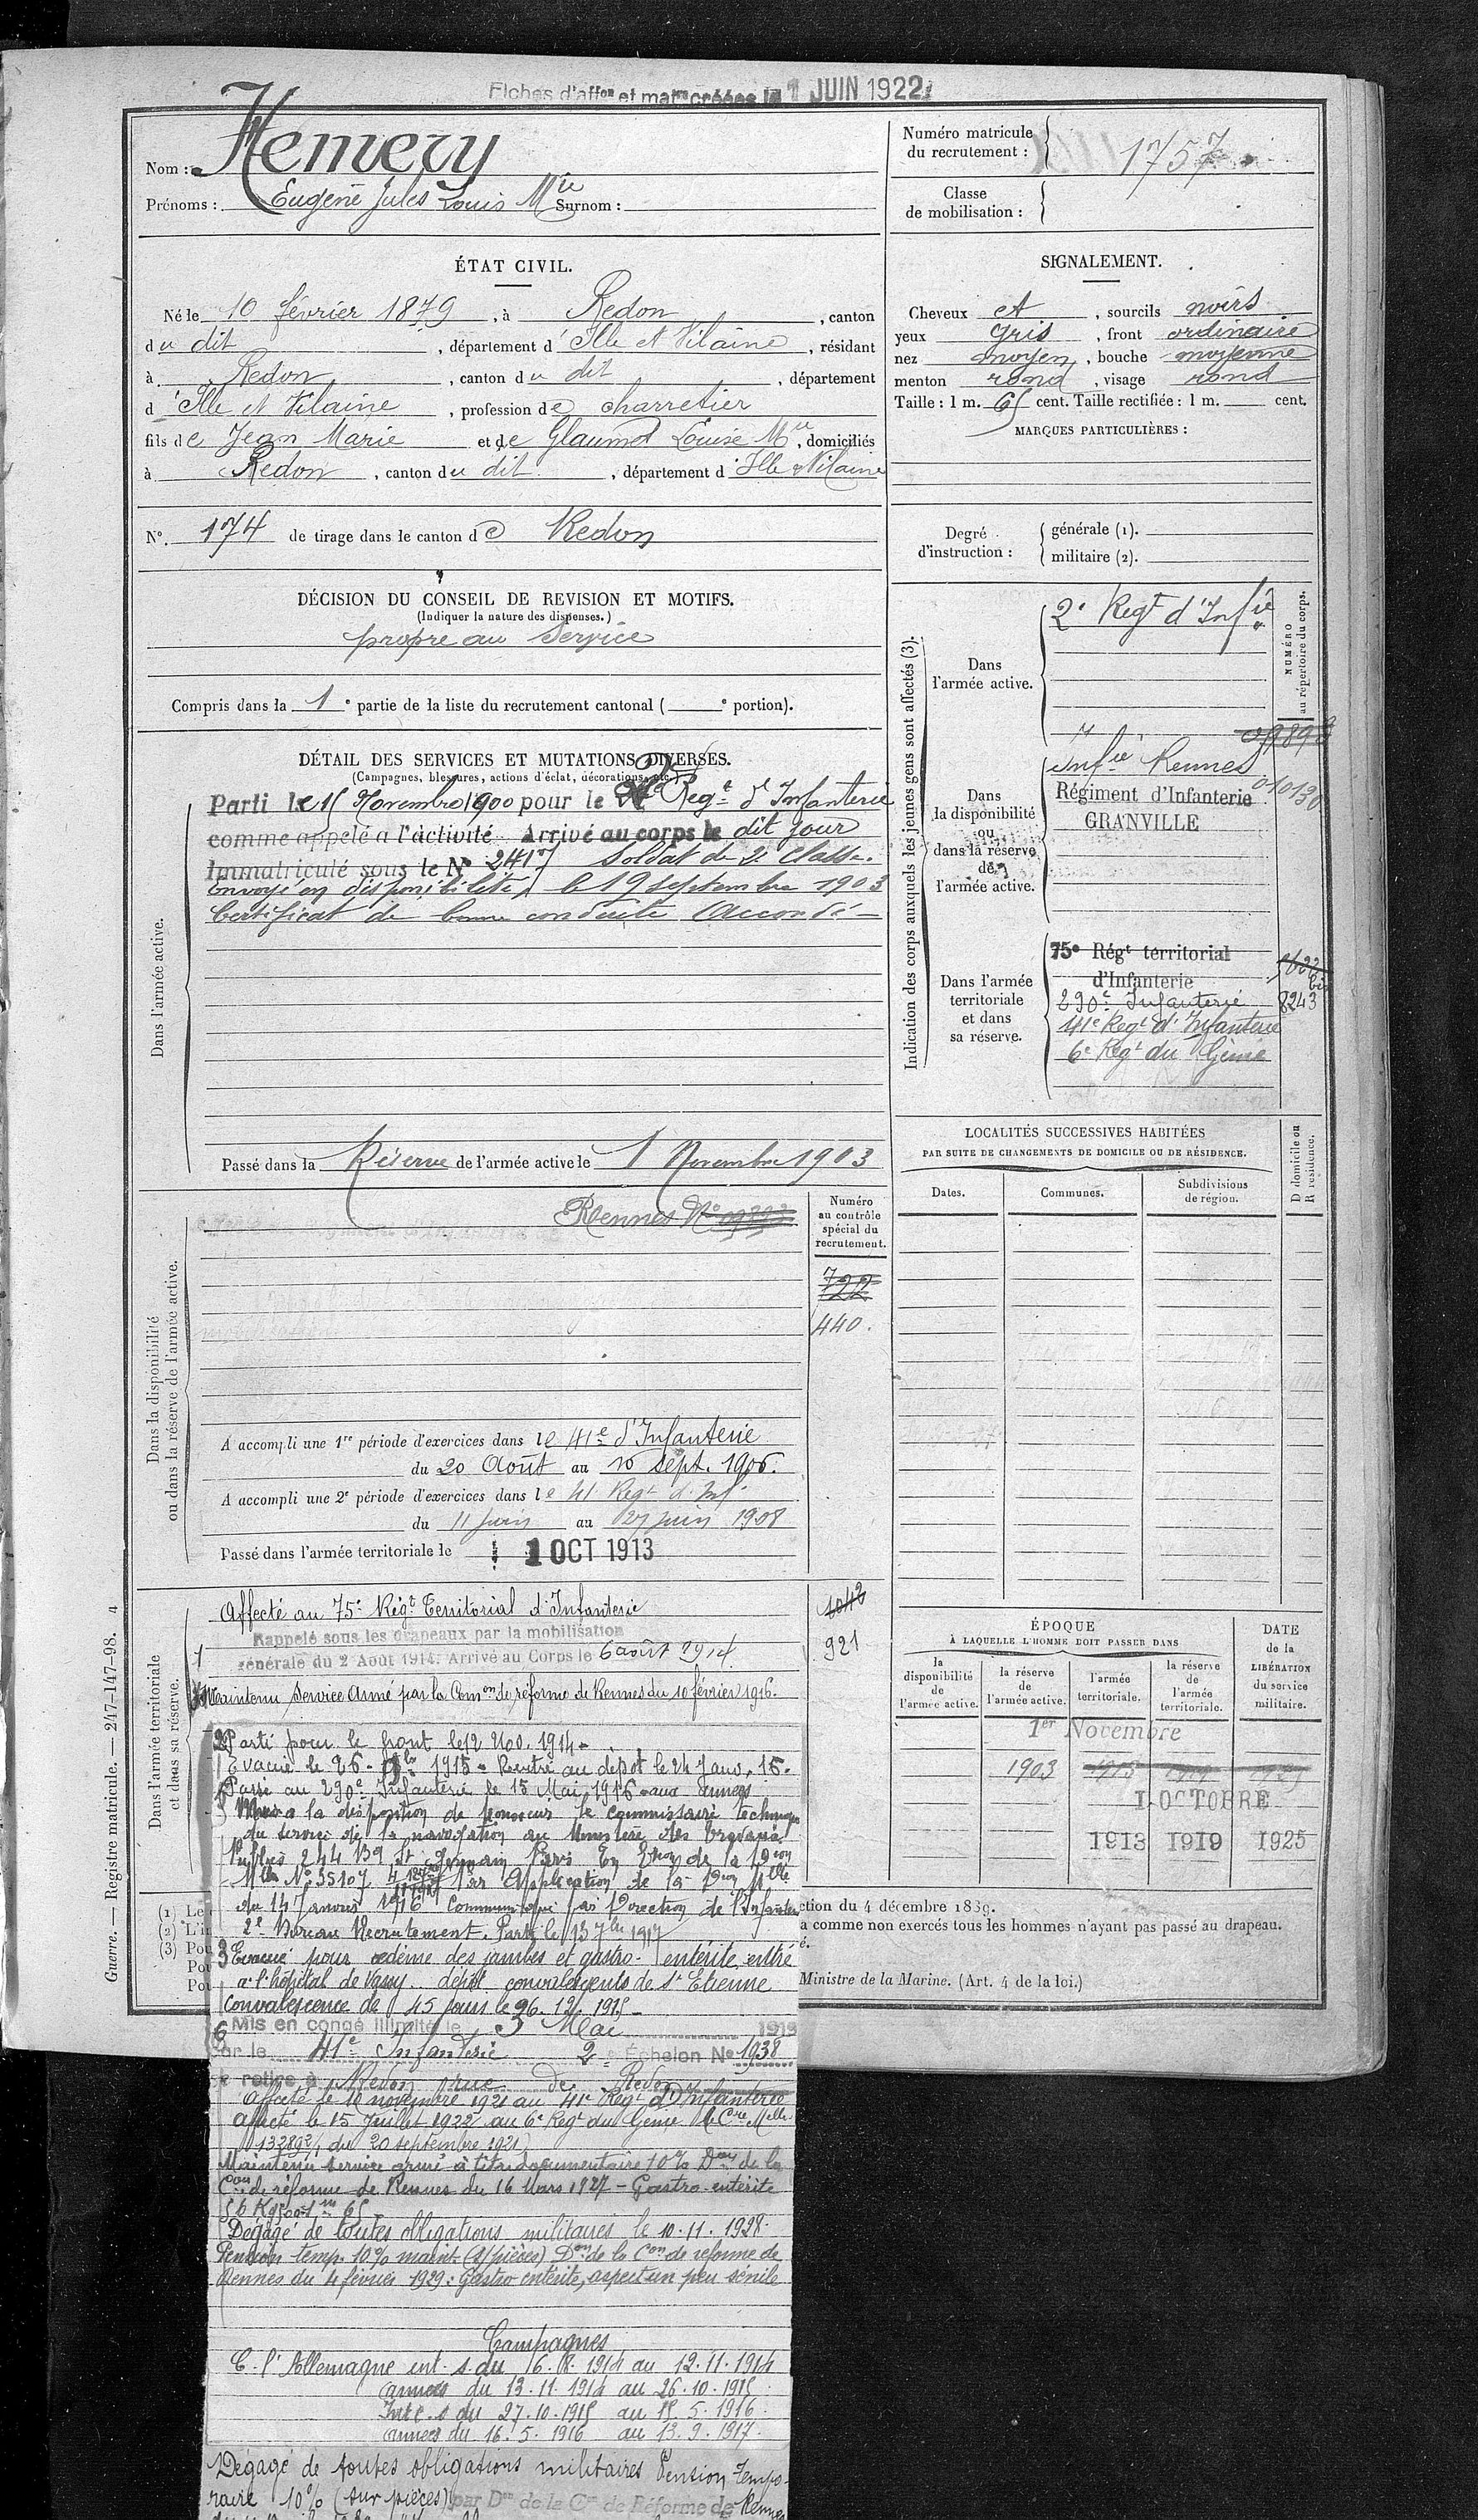 Fiches d'affon et matre créées le 1 JUIN 1922
Nom : Hemery
Prénoms : Eugène Jules Louis Mie Surnom :
Numéro matricule du recrutement : 1757
Classe de mobilisation :
ÉTAT CIVIL.
Né le 10 février 1879, à Redon, canton
du dit, département d'Ille et Vilaine, résidant
à Redon, canton du dit, département
d'Ille et Vilaine, profession de charretier
fils de Jean Marie et de Glaumot Louise Mie, domiciliés
à Redon, canton du dit, département d'Ille & Vilaine
N° 174 de tirage dans le canton de Redon
SIGNALEMENT.
Cheveux et, sourcils noirs
yeux gris, front ordinaire
nez moyen, bouche moyenne
menton rond, visage rond
Taille : 1 m. 65 cent. Taille rectifiée : 1 m. cent.
MARQUES PARTICULIÈRES :
Degré d'instruction : générale (1).
militaire (2).
DÉCISION DU CONSEIL DE REVISION ET MOTIFS.
(Indiquer la nature des dispenses.)
propre au service
Compris dans la 1e partie de la liste du recrutement cantonal ( e portion).
DÉTAIL DES SERVICES ET MUTATIONS DIVERSES.
(Campagnes, blessures, actions d'éclat, décorations, etc.)
Dans l'armée active.
Parti le 15 Novembre 1900 pour le 2e Regt d'Infanterie
comme appelé a l'activité Arrivé au corps le dit jour
Immatriculé sous le N° 2417 Soldat de 2e Classe.
Envoyé en disponibilité le 19 septembre 1903
Certificat de bonne conduite Accordé
Passé dans la Réserve de l'armée active le 1 Novembre 1903
Indication des corps auxquels les jeunes gens sont affectés (3).
NUMÉRO au répertoire du corps.
Dans l'armée active.
2e Regt d'Infie
Dans la disponibilité ou dans la réserve de l'armée active.
Infie Rennes
Régiment d'Infanterie 010130
GRANVILLE
Dans l'armée territoriale et dans sa réserve.
75e Régt territorial
d'Infanterie
290e Infanterie 8243
41e Regt d'Infanterie
6e Regt du Génie
LOCALITÉS SUCCESSIVES HABITÉES
PAR SUITE DE CHANGEMENTS DE DOMICILE OU DE RÉSIDENCE.
Dates. Communes. Subdivisions de région. D domicile ou R résidence.
Dans la disponibilité ou dans la réserve de l'armée active.
Rennes N°
Numéro au contrôle spécial du recrutement.
722
440.
A accompli une 1re période d'exercices dans le 41e d'Infanterie
du 20 Août au 16 Sept. 1906.
A accompli une 2e période d'exercices dans le 41 Regt d'Inf.
du 11 juin au 27 juin 1908
Passé dans l'armée territoriale le 1 OCT 1913
Dans l'armée territoriale et dans sa réserve.
Affecté au 75e Régt Territorial d'Infanterie
1042
921
Rappelé sous les drapeaux par la mobilisation
générale du 2 Août 1914. Arrivé au Corps le 6 août 1914
Maintenu Service Armé par la Comon de réforme de Rennes du 10 février 1916.
ÉPOQUE
À LAQUELLE L'HOMME DOIT PASSER DANS
la disponibilité de l'armée active. la réserve de l'armée active. l'armée territoriale. la réserve de l'armée territoriale.
DATE de la LIBÉRATION du service militaire.
1er Novembre
1903
1 OCTOBRE
1913 1919 1925
2 Parti pour le front le 12 Nov. 1914
Evacué le 26 1915 Rentré au dépot le 24 Janv. 16.
Passé au 290e Infanterie le 15 Mai 1916 aux armées
Mis à la disposition de Monsieur le commissaire technique
du service de la navigation au Ministère des travaux
Publics 244 Bd St Germain Paris En Exon de la Don
Mlle N° 35107 Par Application de la Don Mlle
du 14 janvier 1916 Communiqué par Direction de l'Infanterie
2e Bureau Recrutement. Parti le 13 7bre 1917
3 Evacué pour œdème des jambes et gastro-entérite entré
à l'hôpital de Vassy dépôt convalescents de St Etienne
Convalescence de 45 jours le 26.12.1915
6 Mis en congé illimité le 3 Mai 1919
par le 41e Infanterie 2e Echelon N° 1938
se retire à Redon rue de Redon
Affecté le 10 novembre 1921 au 41e Regt d'Infanterie
Affecté le 15 Juillet 1922 au 6e Regt du Génie Cre Mlle
13289 2/1 du 20 septembre 1921
Maintenu service armé à titre documentaire 10% Don de la
Con de réforme de Rennes du 16 Mars 1927 - Gastro-entérite
56 Kg500 1m 65
Dégagé de toutes obligations militaires le 10.11.1928.
Pension temp. 10% maint (s/pièces) Don de la Con de réforme de
Rennes du 4 février 1929 : Gastro entérite, aspect un peu sénile
Campagnes
C. l'Allemagne int. s. du 6.8.1914 au 12.11.1914
armées du 13.11.1914 au 26.10.1915
Inte. s du 27.10.1915 au 15.5.1916
armées du 16.5.1916 au 13.9.1917
Dégagé de toutes obligations militaires Pension Tempo-
raire 10% (sur pièces) par Don de la Con de Réforme de Rennes
(1) Le
ction du 4 décembre 1889.
(2) L'in
a comme non exercés tous les hommes n'ayant pas passé au drapeau.
(3) Pou
é.
Po
Pou
Ministre de la Marine. (Art. 4 de la loi.)
Guerre. — Registre matricule. — 247-147-98. 4